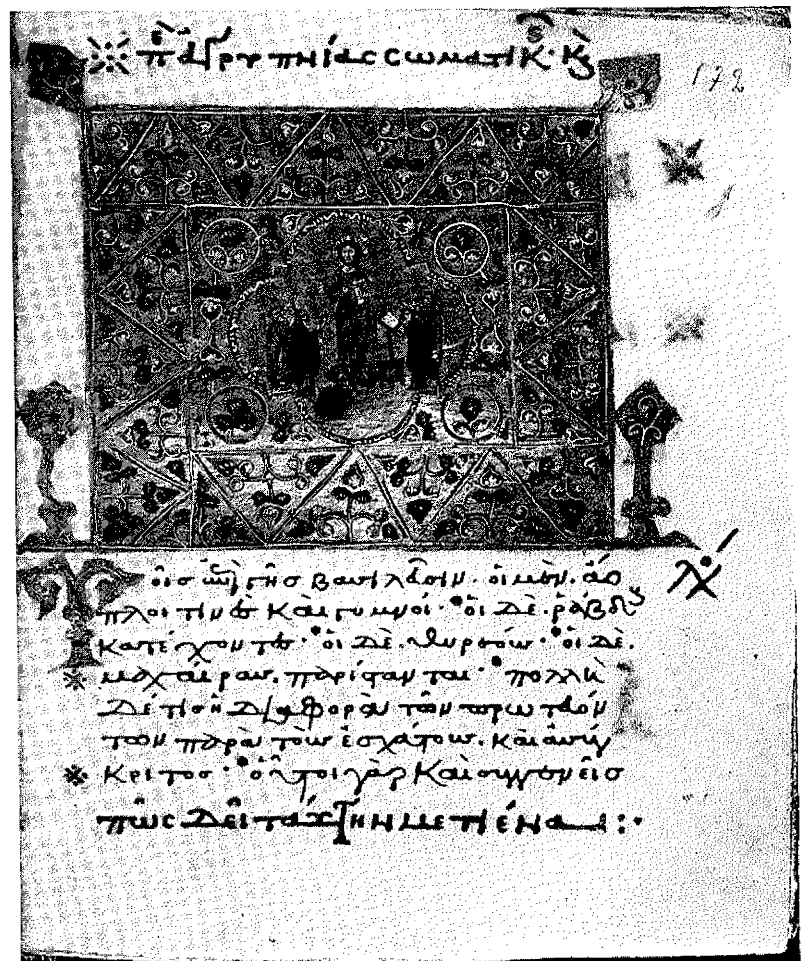 ※ πε ἀγρυπνίας σωματικῆς· καὶ 172
Τοῖς ἐπὶ γῆς βασιλεῦσιν· οἱ μὲν, ἄο
πλοι τινὲς καὶ γυμνοί· οἱ δὲ, ῥάβδους
κατέχοντες· οἱ δὲ, θυρεούς· οἱ δὲ,
μαχαίρας, παρίστανται· πολλὴ
δέ τις ἡ διαφορὰ τῶν πρώτων
τῶν παρὰ τοὺς ἐσχάτους, καὶ ἀσύγ
κριτος· οὗτοι γὰρ καὶ συγγενεῖς
πῶς δεῖ ταύτην μετιέναι:·